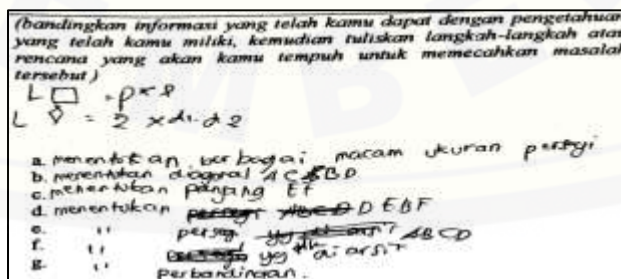 (bandingkan informasi yang telah kamu dapat dengan pengetahuan
yang telah kamu miliki, kemudian tuliskan langkah-langkah atau
rencana yang akan kamu tempuh untuk memecahkan masalah
tersebut)
L □ = p × l
L ◊ = 2 × d1. d2
a. menentukan berbagai macam ukuran persegi
b. menentukan diagonal AC & BD
c. menentukan panjang EF
d. menentukan D EBF
e. " persegi ABCD
f. " yg diarsir
g. " Perbandingan.